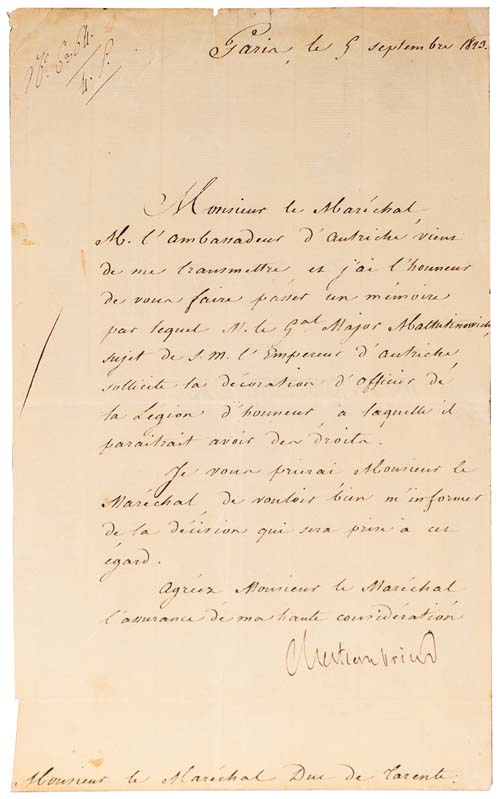 Paris, le 5 septembre 1823.
Monsieur le Maréchal
M. l'ambassadeur d'autriche vient
de me transmettre et j'ai l'honneur
de vous faire passer un mémoire
par lequel M. le Gal Major Maltutinowich,
sujet de S. M. l'Empereur d'autriche
sollicite la décoration d'officier de
la Légion d'honneur, à laquelle il
paraitrait avoir des droits.
Je vous prierai Monsieur le
Maréchal de vouloir bien m'informer
de la décision qui sera prise à cet
égard.
Agréez Monsieur le Maréchal
l'assurance de ma haute considération
Chateaubriand
Monsieur le Maréchal Duc de Tarente.